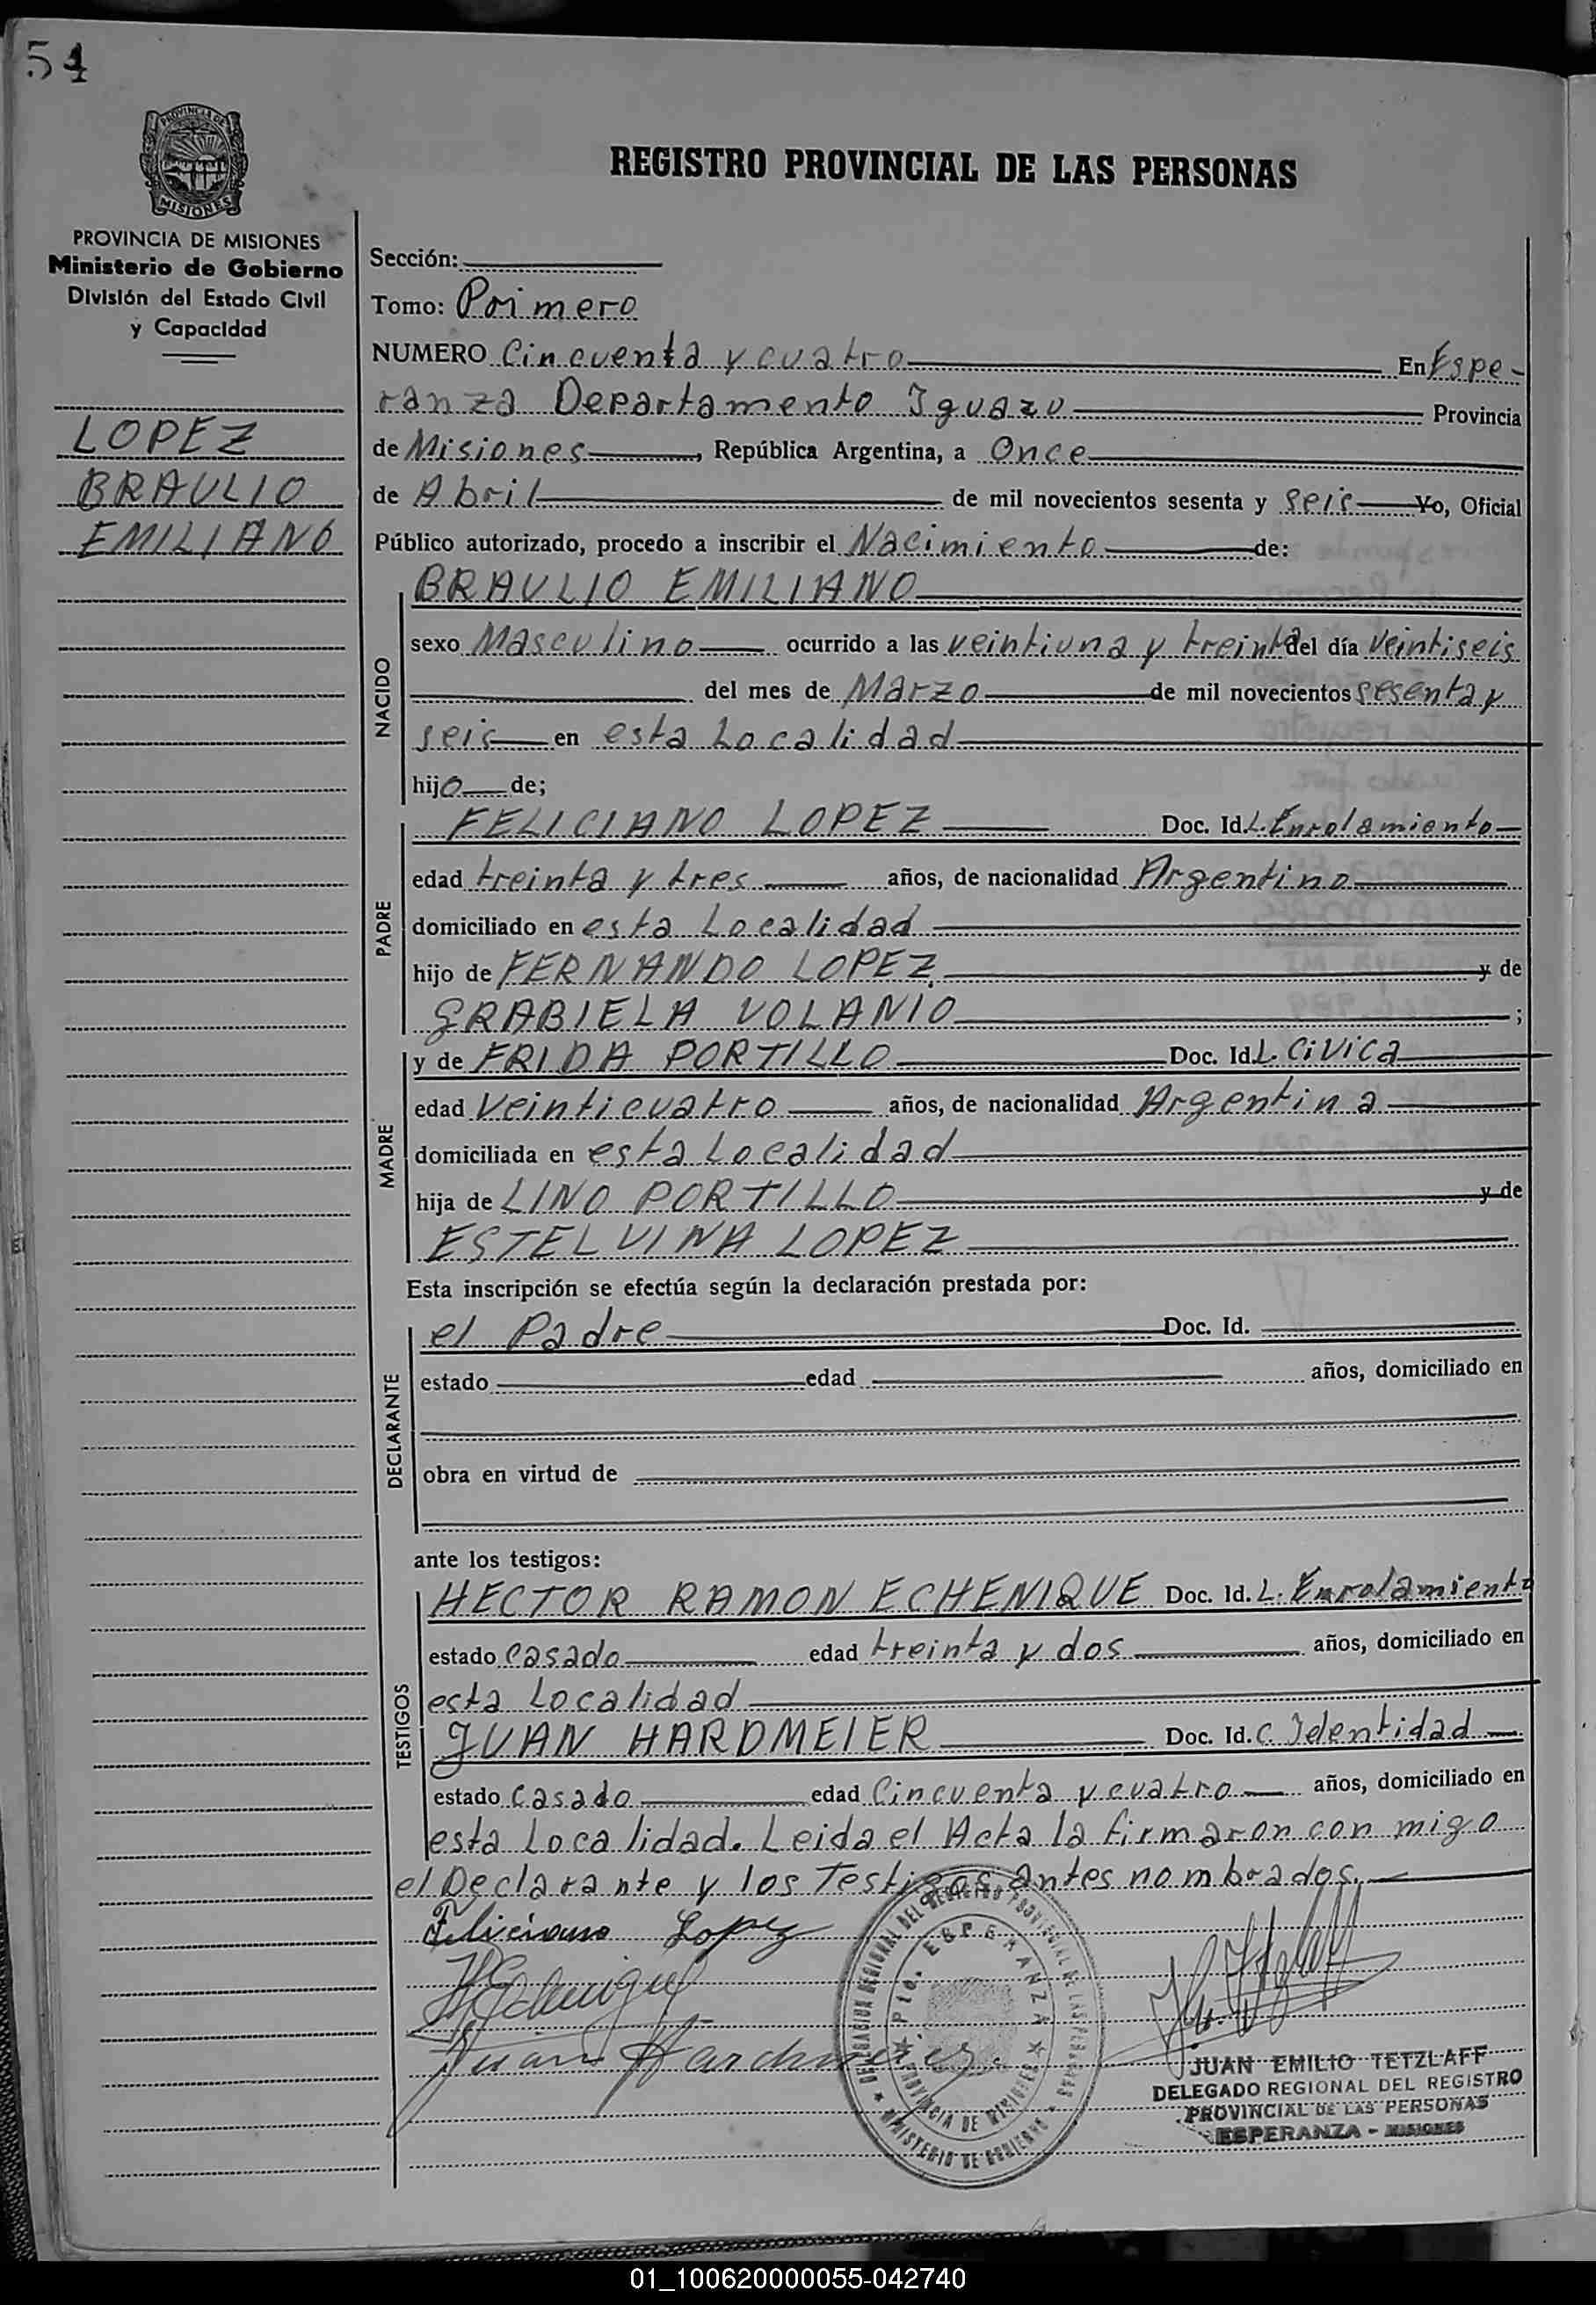 54
PROVINCIA DE
MISIONES
REGISTRO PROVINCIAL DE LAS PERSONAS
PROVINCIA DE MISIONES
Ministerio de Gobierno
División del Estado Civil
y Capacidad
LOPEZ
BRAULIO
EMILIANO
Sección:
Tomo: Primero
NUMERO Cincuenta y cuatro En Espe-
ranza Departamento Iguazu Provincia
de Misiones, República Argentina, a Once
de Abril de mil novecientos sesenta y seis Yo, Oficial
Público autorizado, procedo a inscribir el Nacimiento de:
NACIDO
BRAULIO EMILIANO
sexo Masculino ocurrido a las veintiuna y treinta del día veintiseis
del mes de Marzo de mil novecientos sesenta y
seis en esta Localidad
hijo de;
PADRE
FELICIANO LOPEZ Doc. Id. L. Enrolamiento
edad treinta y tres años, de nacionalidad Argentino
domiciliado en esta Localidad
hijo de FERNANDO LOPEZ y de
GRABIELA VOLANIO ;
MADRE
y de FRIDA PORTILLO Doc. Id. L. Civica
edad Veinticuatro años, de nacionalidad Argentina
domiciliada en esta Localidad
hija de LINO PORTILLO y de
ESTELVINA LOPEZ
Esta inscripción se efectúa según la declaración prestada por:
DECLARANTE
el Padre Doc. Id.
estado edad años, domiciliado en
obra en virtud de
ante los testigos:
TESTIGOS
HECTOR RAMON ECHENIQUE Doc. Id. L. Enrolamiento
estado Casado edad treinta y dos años, domiciliado en
esta Localidad
JUAN HARDMEIER Doc. Id. C. Identidad
estado Casado edad Cincuenta y cuatro años, domiciliado en
esta Localidad. Leida el Acta la firmaron con migo
el Declarante y los Testigos antes nombrados.
Feliciano Lopez
HEchenique
Juan Hardmeier
DELEGACION REGIONAL DEL REGISTRO PROVINCIAL DE LAS PERSONAS
MINISTERIO DE GOBIERNO
Pto. ESPERANZA
PROVINCIA DE MISIONES
JUAN EMILIO TETZLAFF
DELEGADO REGIONAL DEL REGISTRO
PROVINCIAL DE LAS PERSONAS
ESPERANZA - MISIONES
01_100620000055-042740